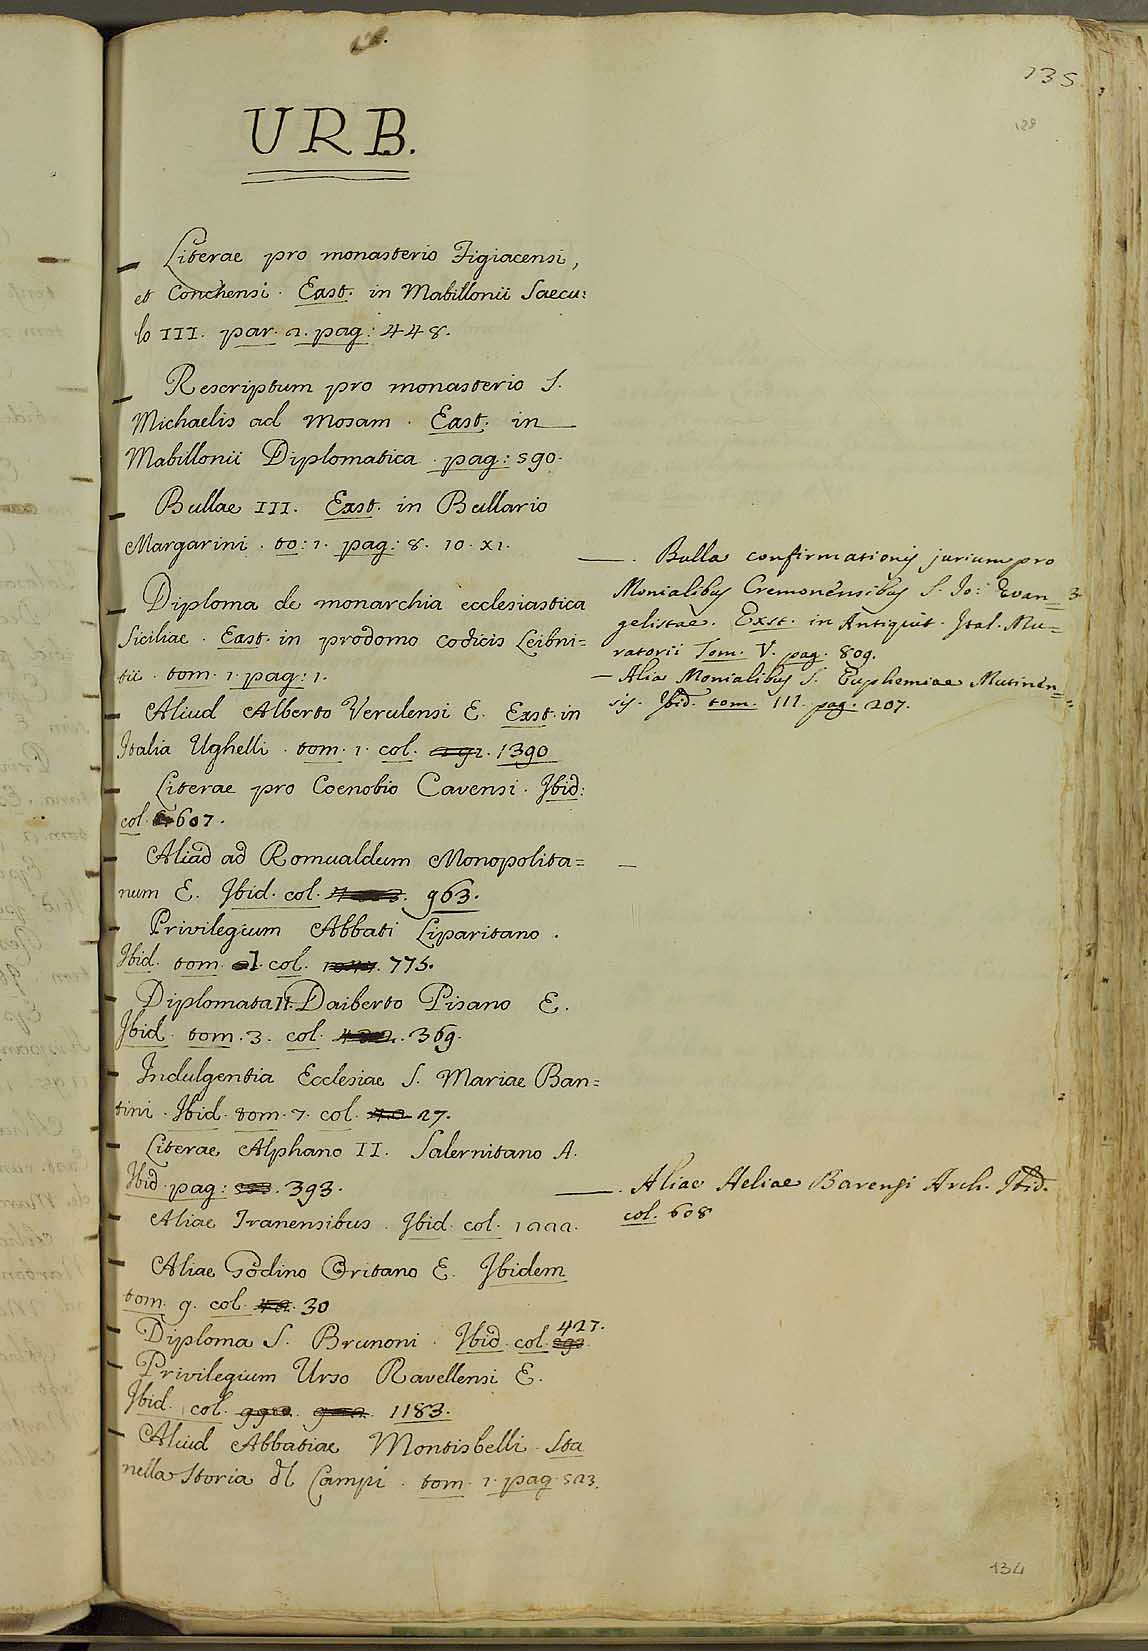 135
128
URB.
Literae pro monasterio Figiacensi,
et Conchensi. Exst. in Mabillonii Saecu:
lo III. par. 2. pag: 448.
Rescriptum pro monasterio S.
Michaelis ad Mosam. Exst. in
Mabillonii Diplomatica. pag: 590.
Bullae III. Exst. in Bullario
Margarini. to: 1. pag: 8. 10. XI.
Diploma de monarchia ecclesiastica
Siciliae. Exst. in prodomo codicis Leibni=
tii. tom. 1. pag: 1.
Aliud Alberto Verulensi E. Exst. in
Italia Ughelli. tom. 1. col. 1390
Literae pro Coenobio Cavensi. Ibid:
col. 607.
Aliud ad Romualdum Monopolita=
num E. Ibid. col. 963.
Privilegium Abbati Liparitano.
Ibid. tom. 1. col. 775.
Diplomata II. Daiberto Pisano E.
Ibid. tom. 3. col. 369.
Indulgentia Ecclesiae S. Mariae Ban=
tini. Ibid. tom. 7. col. 27.
Literae Alphano II. Salernitano A.
Ibid. pag: 393.
Aliae Tranensibus. Ibid. col. 1222.
Aliae Godino Oritano E. Ibidem
tom. 9. col. 30
Diploma S. Brunoni. Ibid. col. 427.
Privilegium Urso Ravellensi E.
Ibid. col. 1183.
Aliud Abbatiae Montisbelli. Sta
nella Storia dl Campi. tom. 1. pag. 523.
Bulla confirmationis jurium pro
Monialibus Cremonensibus S. Jo: Evan=
gelistae. Exst. in Antiquit. Ital. Mu=
ratorii Tom. V. pag. 809.
Alia Monialibus S. Euphemiae Mutinen=
sis. Ibid. tom. III. pag. 207.
Aliae Heliae Barensi Arch. Ibid.
col. 608
134